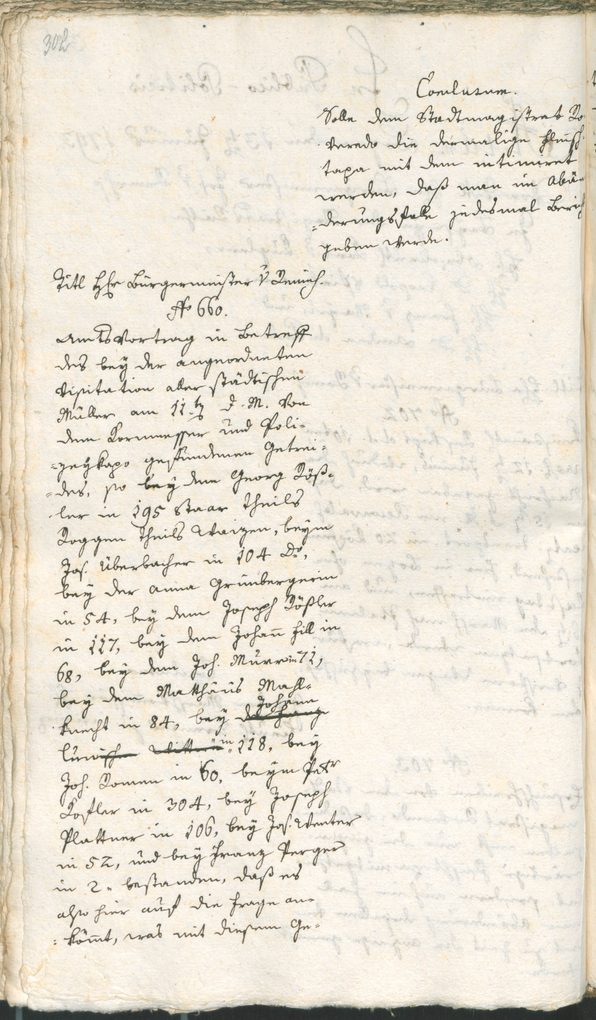 302
Conclusum.
Solle dem Stadtmagistrat Ro
veredo die dermalige Fleisch
taxa mit dem intimiret
werden, daß man im Abän
derungsfalle jedesmal Beric
geben werde.
Titl Hr Bürgermeister v
No 660.
Amtsvortrag in Betreff
des bey der angeordneten
Visitation aller städtischen
Müller am 11t d. M. von
dem Kornmesser und Poli-
zeykapo gefundenen Getrei-
des, so bey dem Georg Röß-
ler in 195 Staar theils
Roggen theils Waizen, beym
Jos. Überbacher in 104 do,
bey der Anna Grünbergerin
in 54, bey dem Joseph Rößler
in 117, bey dem Johann Fill in
68, bey dem Joh. in 71,
bey dem Matthäus Mahl-
knecht in 84, bey Johann
in 118, bey
Joh. Romen in 60, beym Petr
Kofler in 304, bey Joseph
Plattner in 106, bey Jos. Venter
in 52, und bey Franz Perger
in 2 bestanden, daß es
also hier auf die Frage an-
kömmt, was mit diesem Ge-